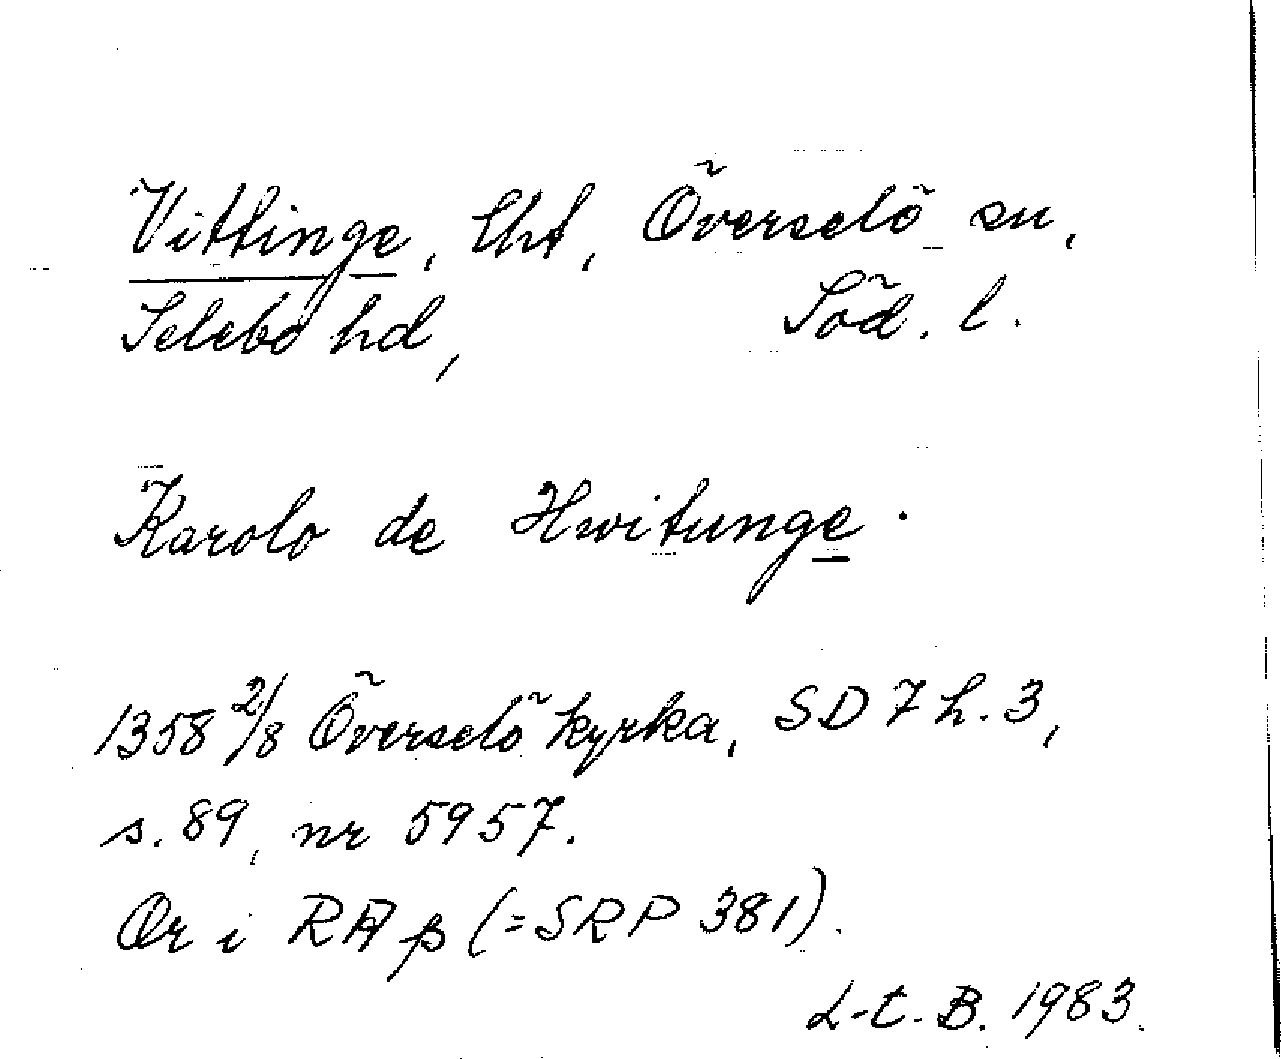 Vittinge, lht, Överselö sn,
Selebo hd, Söd. l.
Karolo de Hwitunge.
1358 2/8 Överselö kyrka, SD 7 h. 3,
s. 89, nr 5957.
Or i RA p (=SRP 381).
L-t. B. 1983.